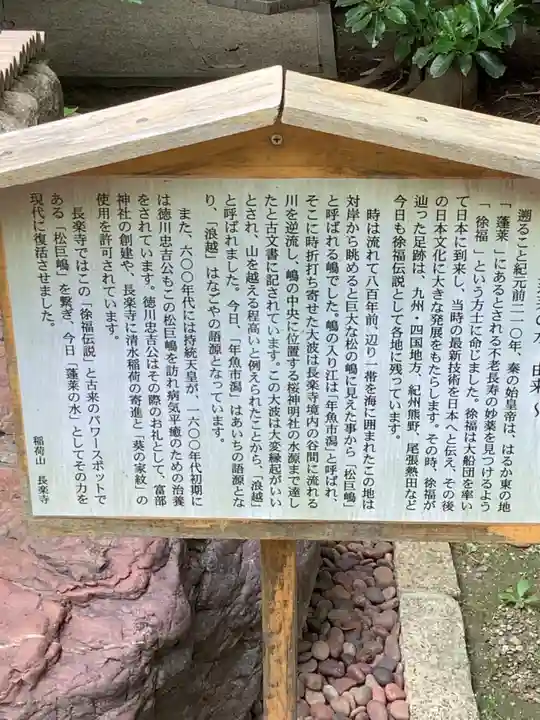 の水 由来〜
遡ること紀元前二一〇年、秦の始皇帝は、はるか東の地
「蓬莱」にあるとされる不老長寿の妙薬を見つけるよう
「徐福」という方士に命じました。徐福は大船団を率い
て日本に到来し、当時の最新技術を日本へと伝え、その後
の日本文化に大きな発展をもたらします。その時、徐福が
辿った足跡は、九州、四国地方、紀州熊野、尾張熱田など
今日も徐福伝説として各地に残っています。
時は流れて八百年前、辺り一帯を海に囲まれたこの地は
対岸から眺めると巨大な松の嶋に見えた事から「松巨嶋」
と呼ばれる嶋でした。嶋の入り江は「年魚市潟」と呼ばれ、
そこに時折打ち寄せた大波は長楽寺境内の谷間に流れる
川を逆流し、嶋の中央に位置する桜神明社の水源まで達し
たと古文書に記されています。この大波は大変縁起がいい
とされ、山を越える程高いと例えられたことから、「浪越」
と呼ばれました。今日、「年魚市潟」はあいちの語源とな
り、「浪越」はなごやの語源となっています。
また、六〇〇年代には持統天皇が、一六〇〇年代初期に
は徳川忠吉公もこの松巨嶋を訪れ病気平癒のための治養
をされています。徳川忠吉公はその際のお礼として、富部
神社の創建や、長楽寺に清水稲荷の寄進と「葵の家紋」の
使用を許可されています。
長楽寺ではこの「徐福伝説」と古来のパワースポットで
ある「松巨嶋」を繋ぎ、今日「蓬莱の水」としてその力を
現代に復活させました。
稲荷山 長楽寺